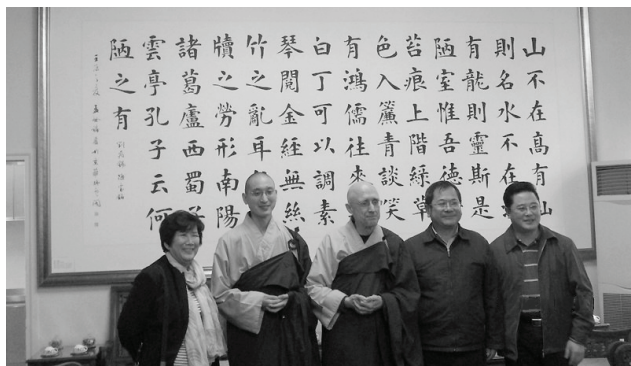 山不在高有仙
則名水不在
有龍則靈斯是
陋室惟吾德
苔痕上階綠草
色入簾青談笑
有鴻儒往來
白丁可以調素
琴閱金經無絲
竹之亂耳
牘之勞形南陽
諸葛廬西蜀子
雲亭孔子云何
陋之有